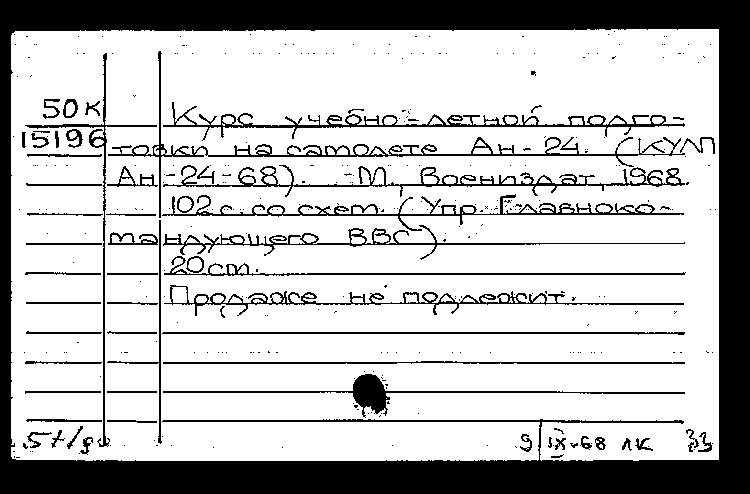 50К
15196
Курс учебно-летной подго-
товки на самолете Ан-24. (КУЛП
Ан-24-68). -М., Воениздат, 1968.
102 с. со схем. (Упр. Главноко-
мандующего ВВС).
20 см.
Продаже не подлежит.
9/IX-68 лк 33